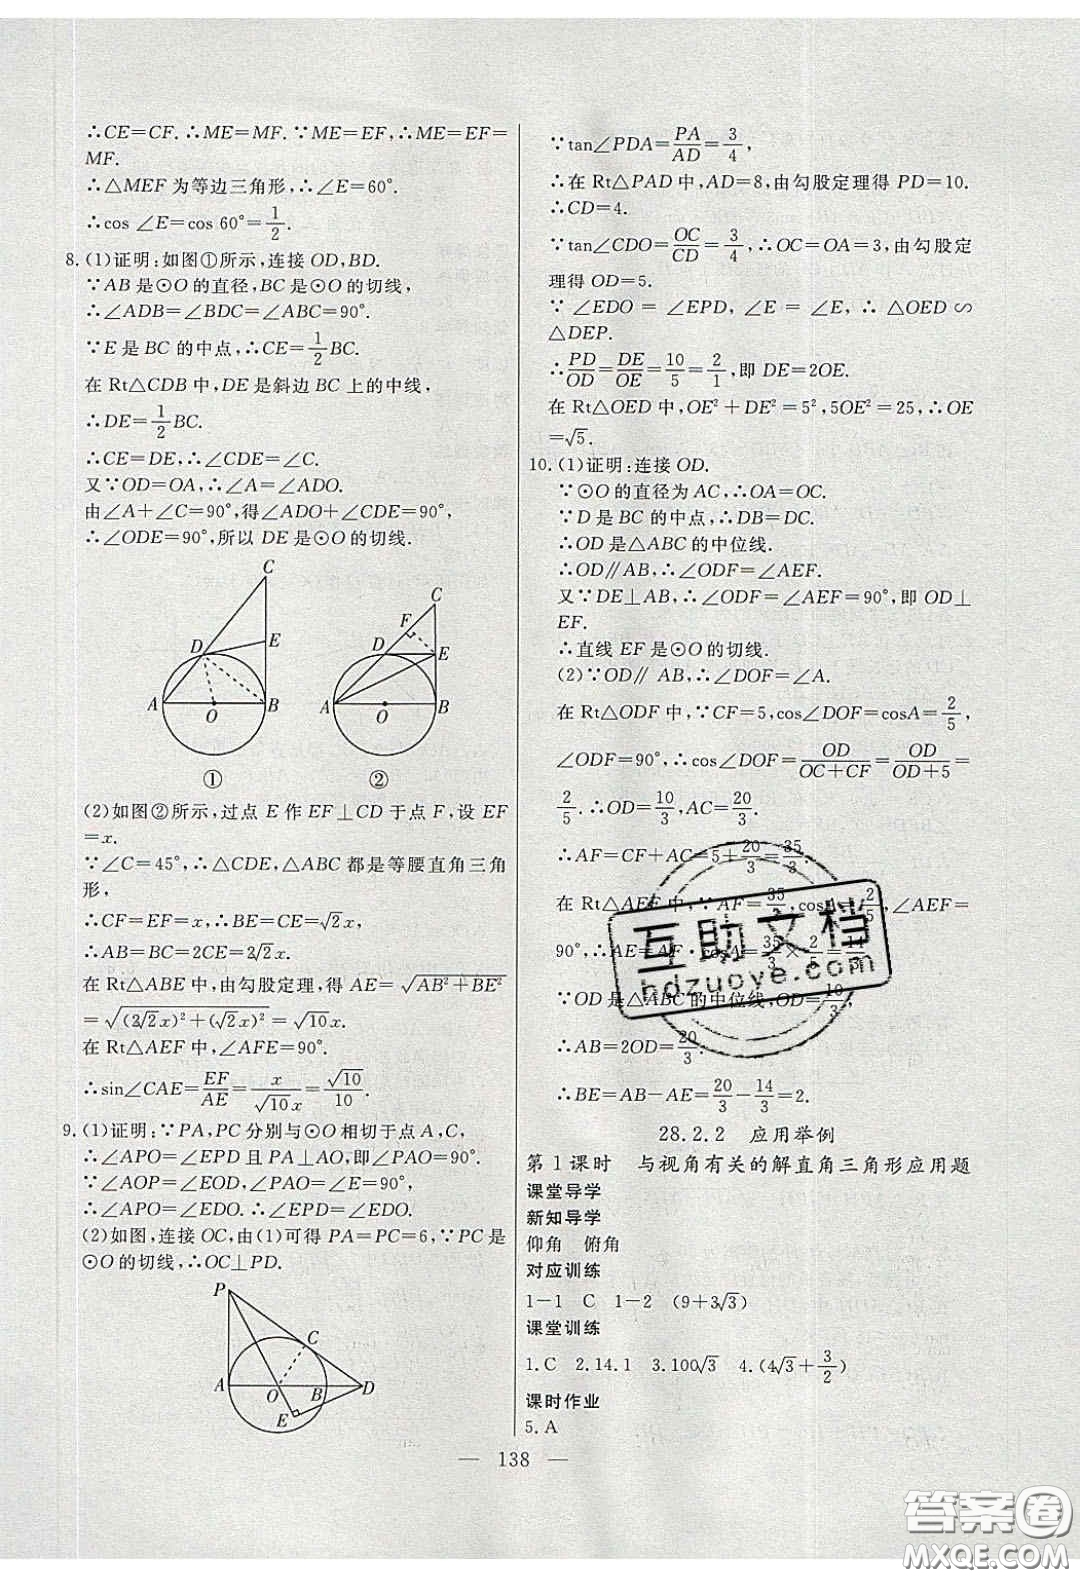 ∴CE=CF. ∴ME=MF. ∵ME=EF,∴ME=EF=
MF.
∴△MEF 为等边三角形,∴∠E=60°.
∴cos ∠E=cos 60°=1/2.
8. (1)证明:如图①所示,连接 OD,BD.
∵AB 是⊙O 的直径,BC 是⊙O 的切线,
∴∠ADB=∠BDC=∠ABC=90°.
∵E 是 BC 的中点,∴CE=1/2BC.
在 Rt△CDB 中,DE 是斜边 BC 上的中线,
∴DE=1/2BC.
∴CE=DE,∴∠CDE=∠C.
又∵OD=OA,∴∠A=∠ADO.
由∠A+∠C=90°,得∠ADO+∠CDE=90°,
∴∠ODE=90°,所以 DE 是⊙O 的切线.
C
D
E
A
O
B
①
C
F
D
E
A
O
B
②
(2)如图②所示,过点 E 作 EF⊥CD 于点 F,设 EF
=x.
∵∠C=45°,∴△CDE,△ABC 都是等腰直角三角
形,
∴CF=EF=x,∴BE=CE=√2x,
∴AB=BC=2CE=2√2x.
在 Rt△ABE 中,由勾股定理,得 AE=√(AB²+BE²)
=√((2√2x)²+(√2x)²)=√10x.
在 Rt△AEF 中,∠AFE=90°.
∴sin∠CAE=EF/AE=x/(√10x)=√10/10.
9. (1)证明:∵PA,PC 分别与⊙O 相切于点 A,C,
∴∠APO=∠EPD 且 PA⊥AO,即∠PAO=90°.
∵∠AOP=∠EOD,∠PAO=∠E=90°,
∴∠APO=∠EDO. ∴∠EPD=∠EDO.
(2)如图,连接 OC,由(1)可得 PA=PC=6,∵PC 是
⊙O 的切线,∴OC⊥PD.
P
C
A
O
B
D
E
∵tan∠PDA=PA/AD=3/4,
∴在 Rt△PAD 中,AD=8,由勾股定理得 PD=10.
∴CD=4.
∵tan∠CDO=OC/CD=3/4,∴OC=OA=3,由勾股定
理得 OD=5.
∵ ∠EDO = ∠EPD, ∠E = ∠E, ∴ △OED ∽
△DEP.
∴PD/OD=DE/OE=10/5=2/1,即 DE=2OE.
在 Rt△OED 中,OE²+DE²=5²,5OE²=25,∴OE
=√5.
10. (1)证明:连接 OD.
∵⊙O 的直径为 AC,∴OA=OC.
∵D 是 BC 的中点,∴DB=DC.
∴OD 是△ABC 的中位线.
∴OD∥AB,∴∠ODF=∠AEF.
又∵DE⊥AB,∴∠ODF=∠AEF=90°,即 OD⊥
EF.
∴直线 EF 是⊙O 的切线.
(2)∵OD∥ AB,∴∠DOF=∠A.
在 Rt△ODF 中,∵CF=5,cos∠DOF=cosA=2/5,
∠ODF=90°,∴cos∠DOF=OD/(OC+CF)=OD/(OD+5)=
2/5. ∴OD=10/3,AC=20/3.
∴AF=CF+AC=5+20/3=35/3.
在 Rt△AEF 中,∵AF=35/3,cosA=2/5,∠AEF=
90°,∴AE=AF·cosA=35/3×2/5=14/3.
∵OD 是△ABC 的中位线,OD=10/3,
∴AB=2OD=20/3.
∴BE=AB-AE=20/3-14/3=2.
28.2.2 应用举例
第 1 课时 与视角有关的解直角三角形应用题
课堂导学
新知导学
仰角 俯角
对应训练
1-1 C 1-2 (9+3√3)
课堂训练
1.C 2.14.1 3.100√3 4.(4√3+3/2)
课时作业
5.A
— 138 —
互助文档
hdzuoye.com
答案圈
MXQE.COM